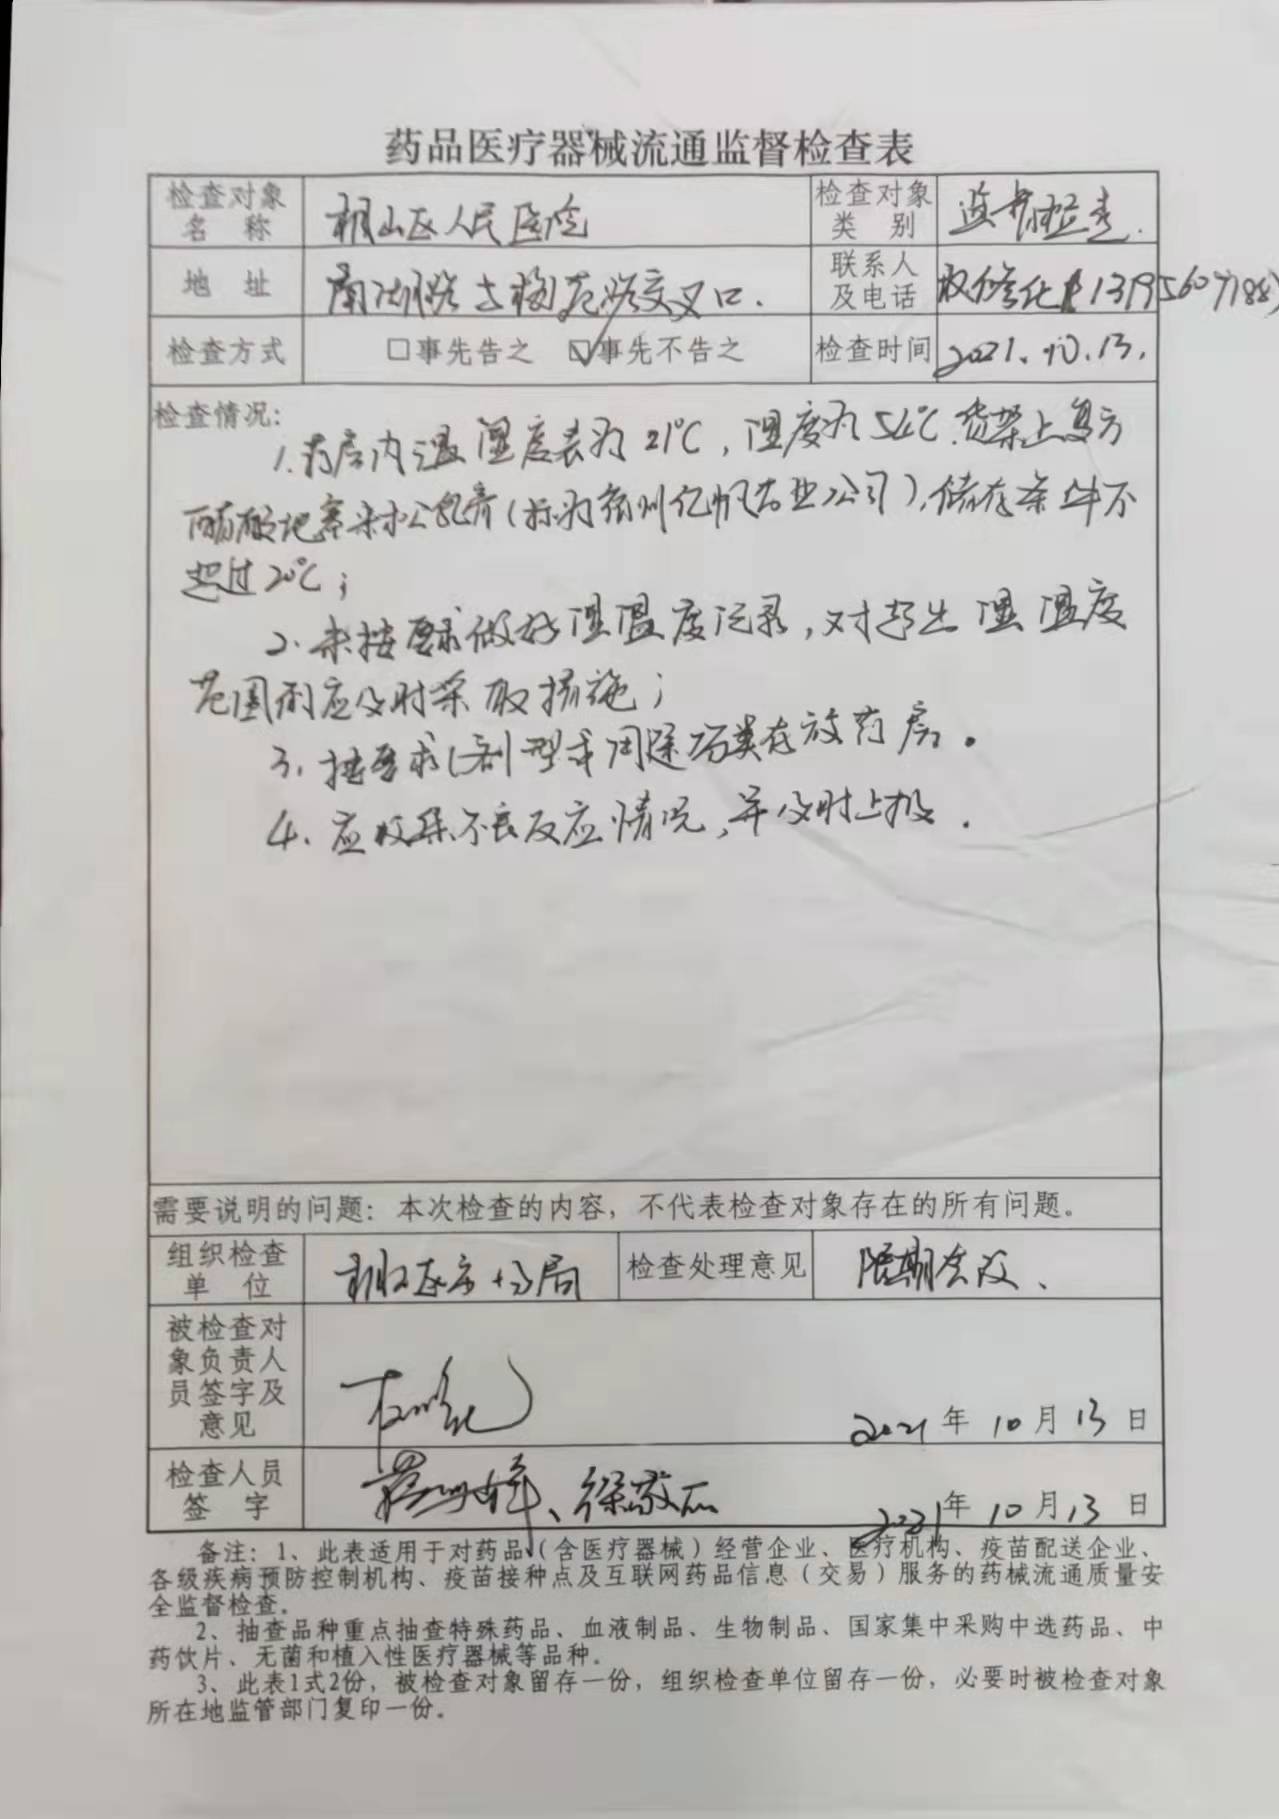 药品医疗器械流通监督检查表
检查对象名称 相山区人民医院 检查对象类别 监督检查.
地址 南湖路与梅苑路交叉口. 联系人及电话
检查方式 □事先告之 ☑事先不告之 检查时间 2021.10.13.
检查情况:
1.药房内温湿度表为21℃,湿度为54℃.货架上复方
醋酸地塞米松乳膏(标为 亿帆药业公司).储存条件不
超过20℃;
2.未按要求做好温湿度记录,对超出温湿度
范围的应及时采取措施;
3.按要求 剂型或用途分类存放药房。
4.应收集不良反应情况,并及时上报.
需要说明的问题:本次检查的内容,不代表检查对象存在的所有问题。
组织检查单位 相山区市场局 检查处理意见 限期整改、
被检查对象负责人员签字及意见 2021年10月13日
检查人员签字 徐敬 2021年10月13日
备注:1、此表适用于对药品(含医疗器械)经营企业、医疗机构、疫苗配送企业、
各级疾病预防控制机构、疫苗接种点及互联网药品信息(交易)服务的药械流通质量安
全监督检查。
2、抽查品种重点抽查特殊药品、血液制品、生物制品、国家集中采购中选药品、中
药饮片、无菌和植入性医疗器械等品种。
3、此表1式2份,被检查对象留存一份,组织检查单位留存一份,必要时被检查对象
所在地监管部门复印一份。